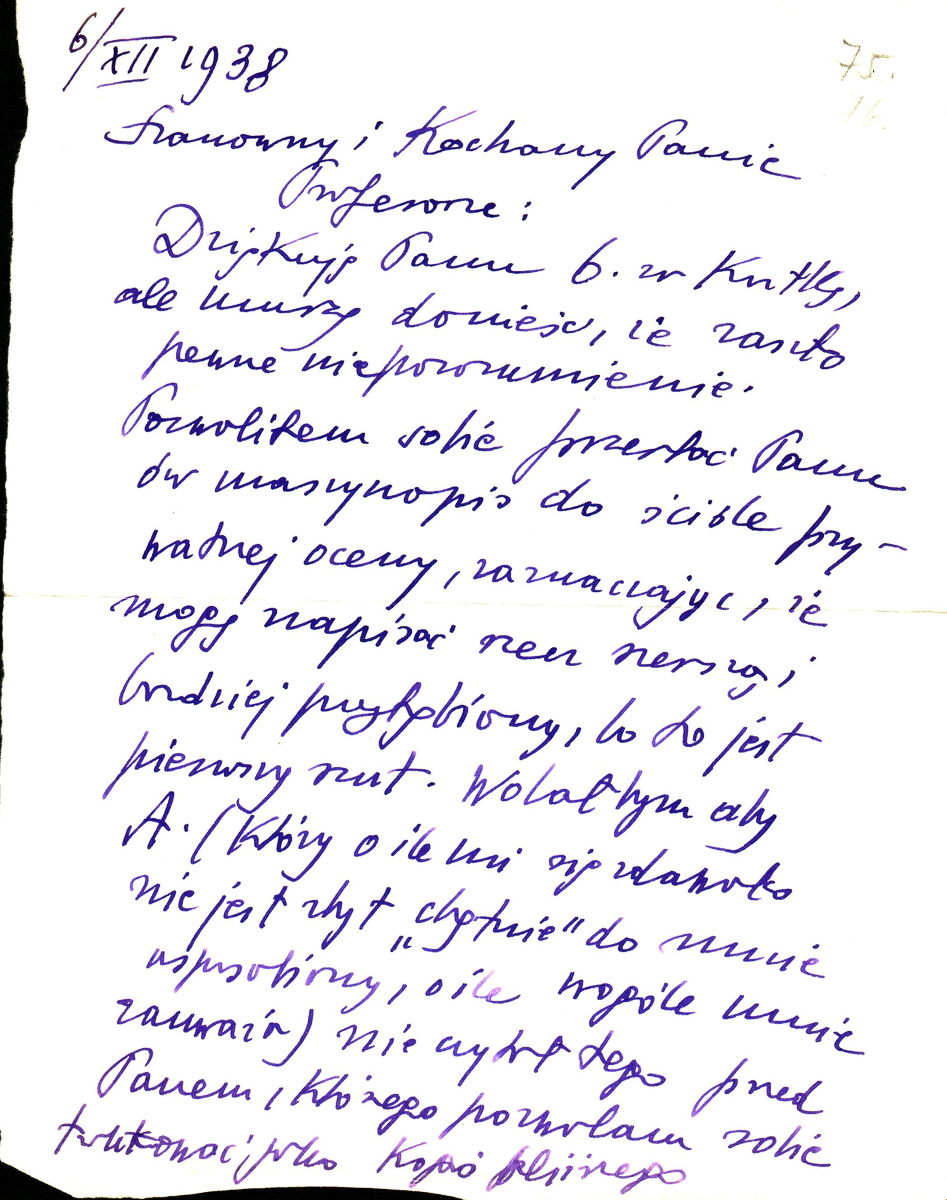 6/XII 1938
75.
76.
Szanowny i Kochany Panie
Profesorze:
Dziękuję Panu b. za kartkę,
ale muszę donieść, że zaszło
pewne nieporozumienie.
Pozwoliłem sobie przesłać Panu
ów maszynopis do ściśle pry-
watnej oceny, zaznaczając, że
mogę napisać rzecz szerszą i
bardziej pogłębioną, bo to jest
pierwszy rzut. Wolałbym aby
A. (który o ile mi się zdawało
nie jest zbyt „chętnie" do mnie
usposobiony, o ile wogóle mnie
zauważa) nie czytał tego przed
Panem, którego pozwalam sobie
traktować jako kogoś